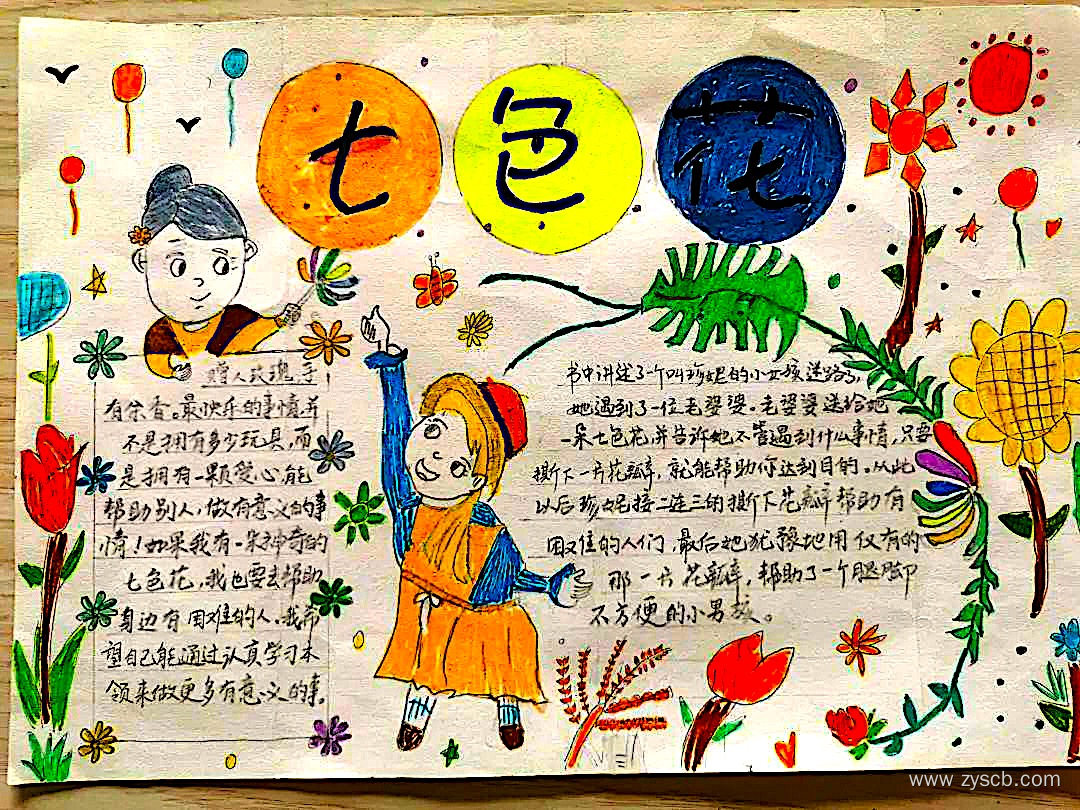 七色花
赠人玫瑰,手
有余香。最快乐的事情并
不是拥有多少玩具,而
是拥有一颗爱心,能
帮助别人,做有意义的事
情!如果我有一朵神奇的
七色花,我也要去帮助
身边有困难的人。我希
望自己能通过认真学习本
领来做更多有意义的事。
书中讲述了一个叫珍妮的小女孩迷路了,
她遇到了一位老婆婆。老婆婆送给她
一朵七色花,并告诉她不管遇到什么事情,只要
撕下一片花瓣,就能帮助你达到目的。从此
以后珍妮接二连三的撕下花瓣帮助有
困难的人们,最后她犹豫地用仅有的
那一片花瓣,帮助了一个腿脚
不方便的小男孩。
www.zyscb.com